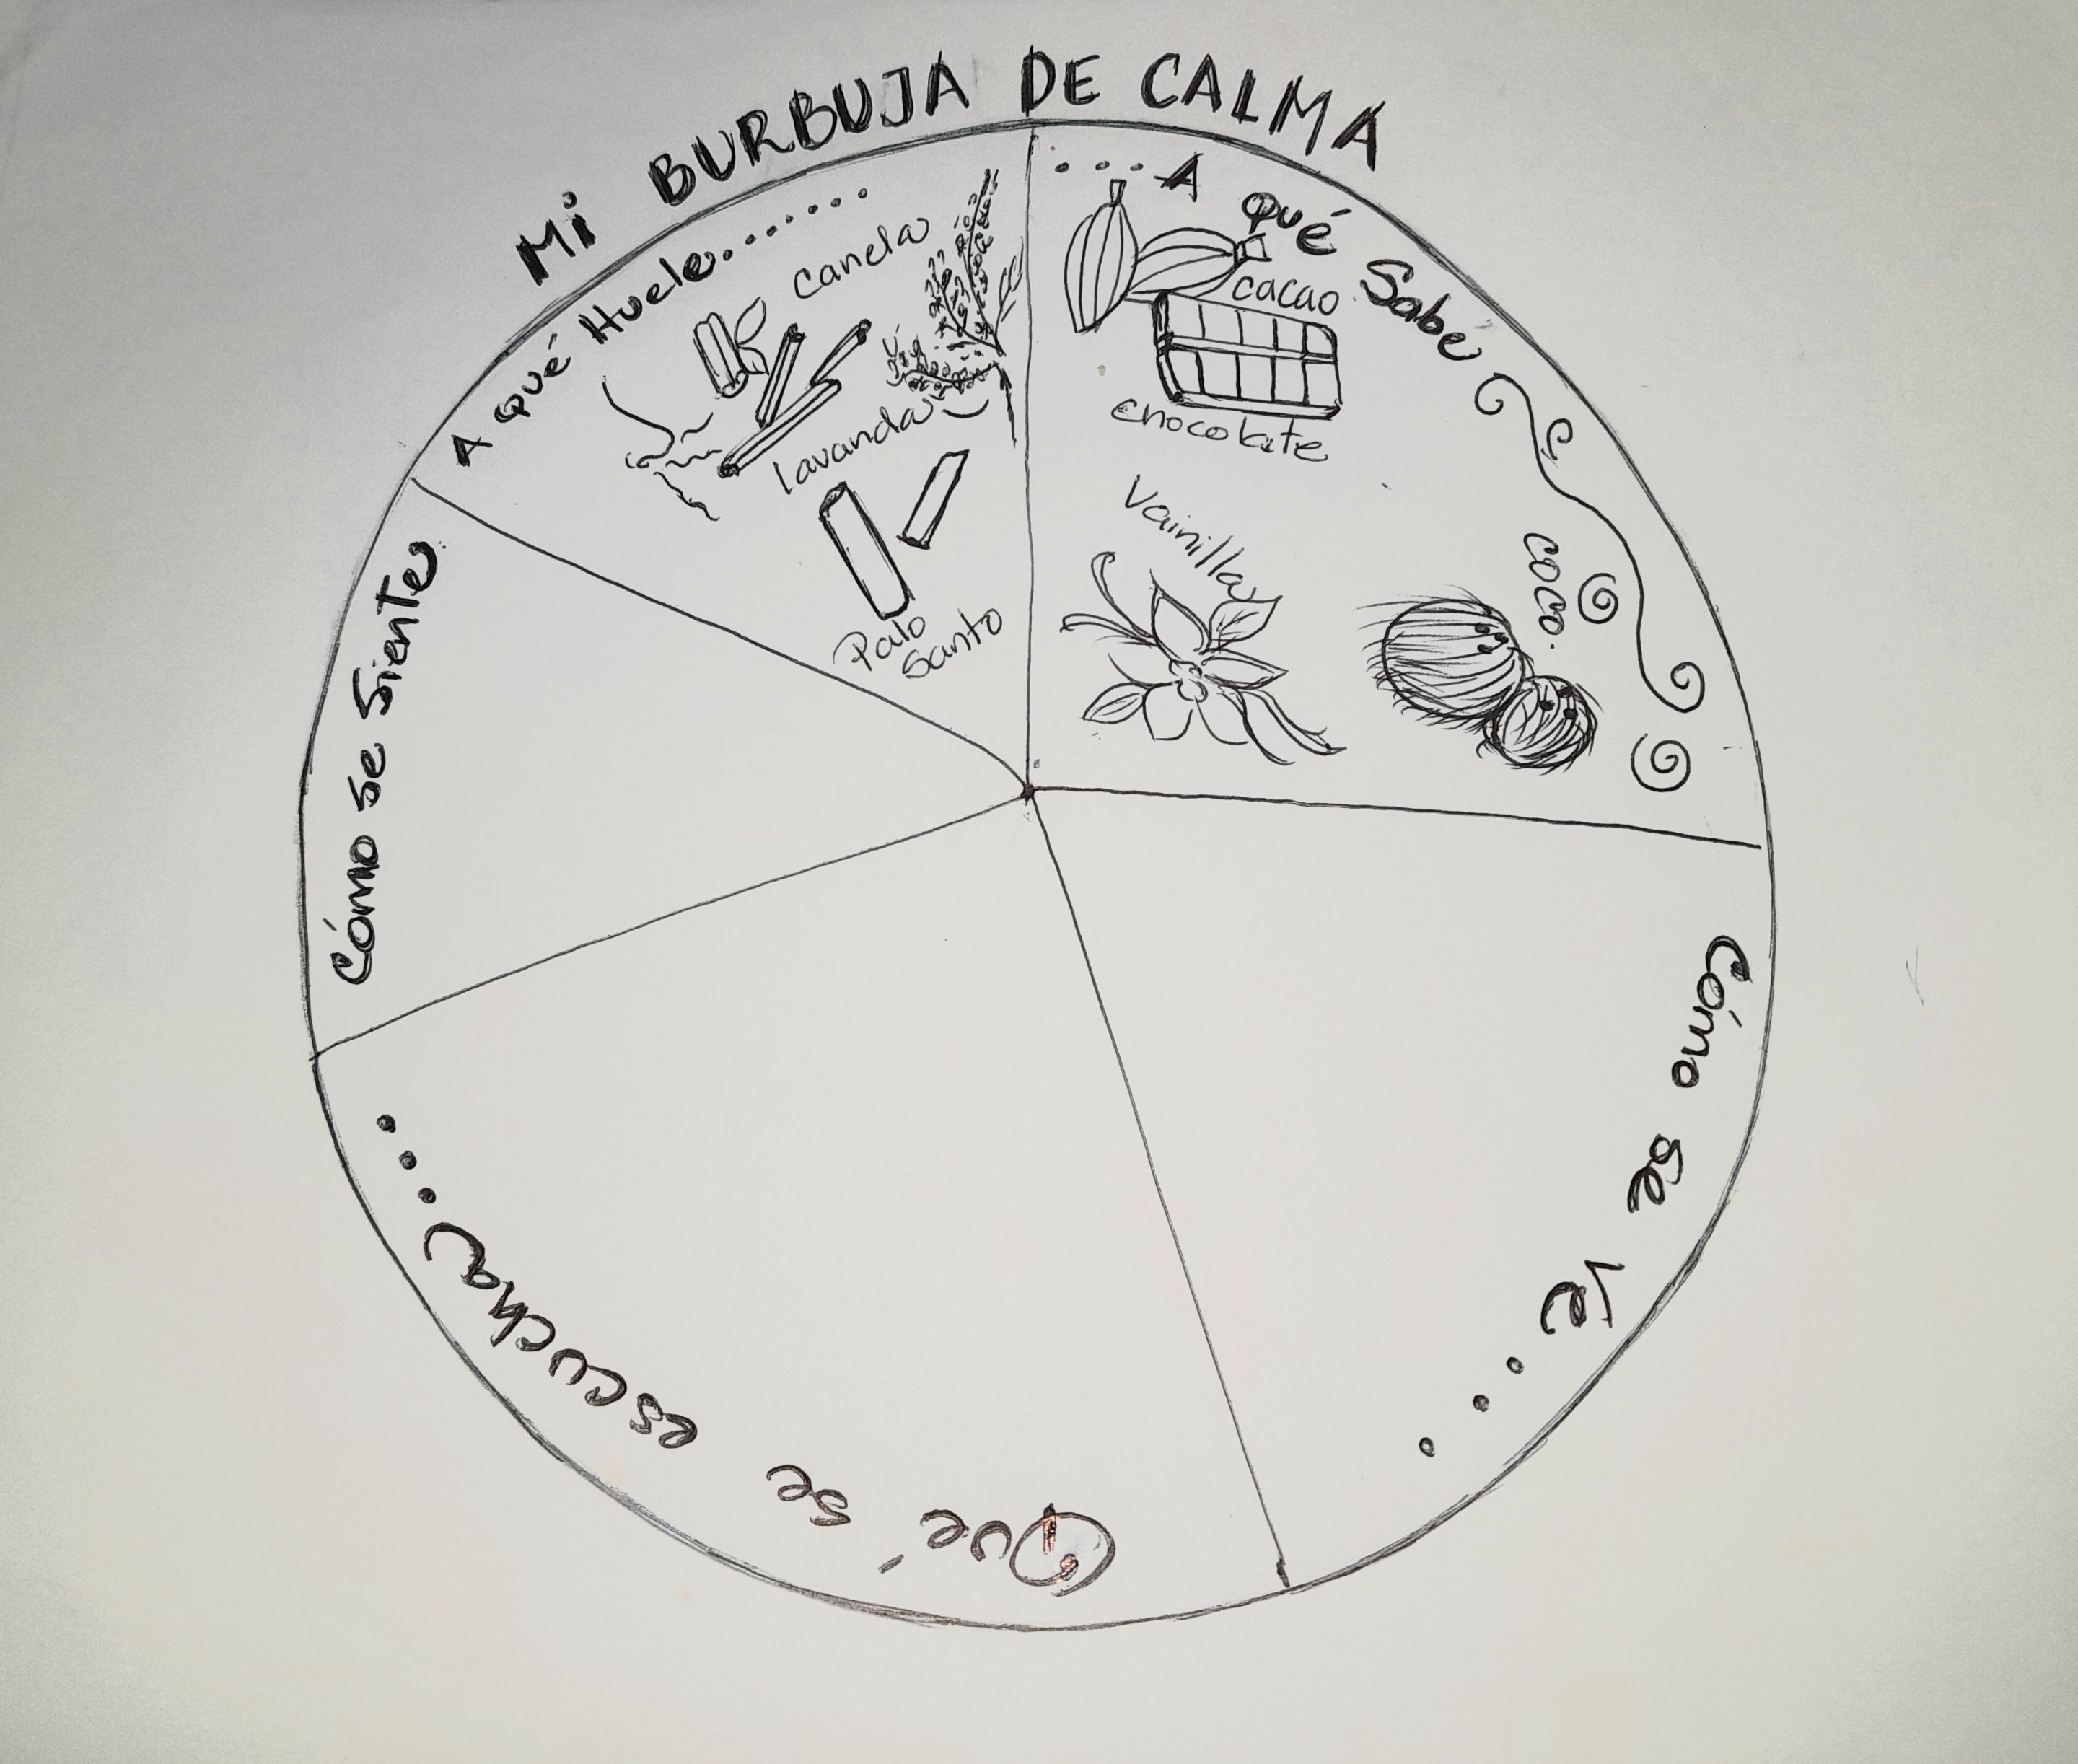 MI BURBUJA DE CALMA
A qué Huele.......
canela
lavanda
Palo
Santo
....A qué Sabe
cacao
chocolate
Vainilla
coco.
Cómo se Ve...
Qué se escucha...
Cómo se siente